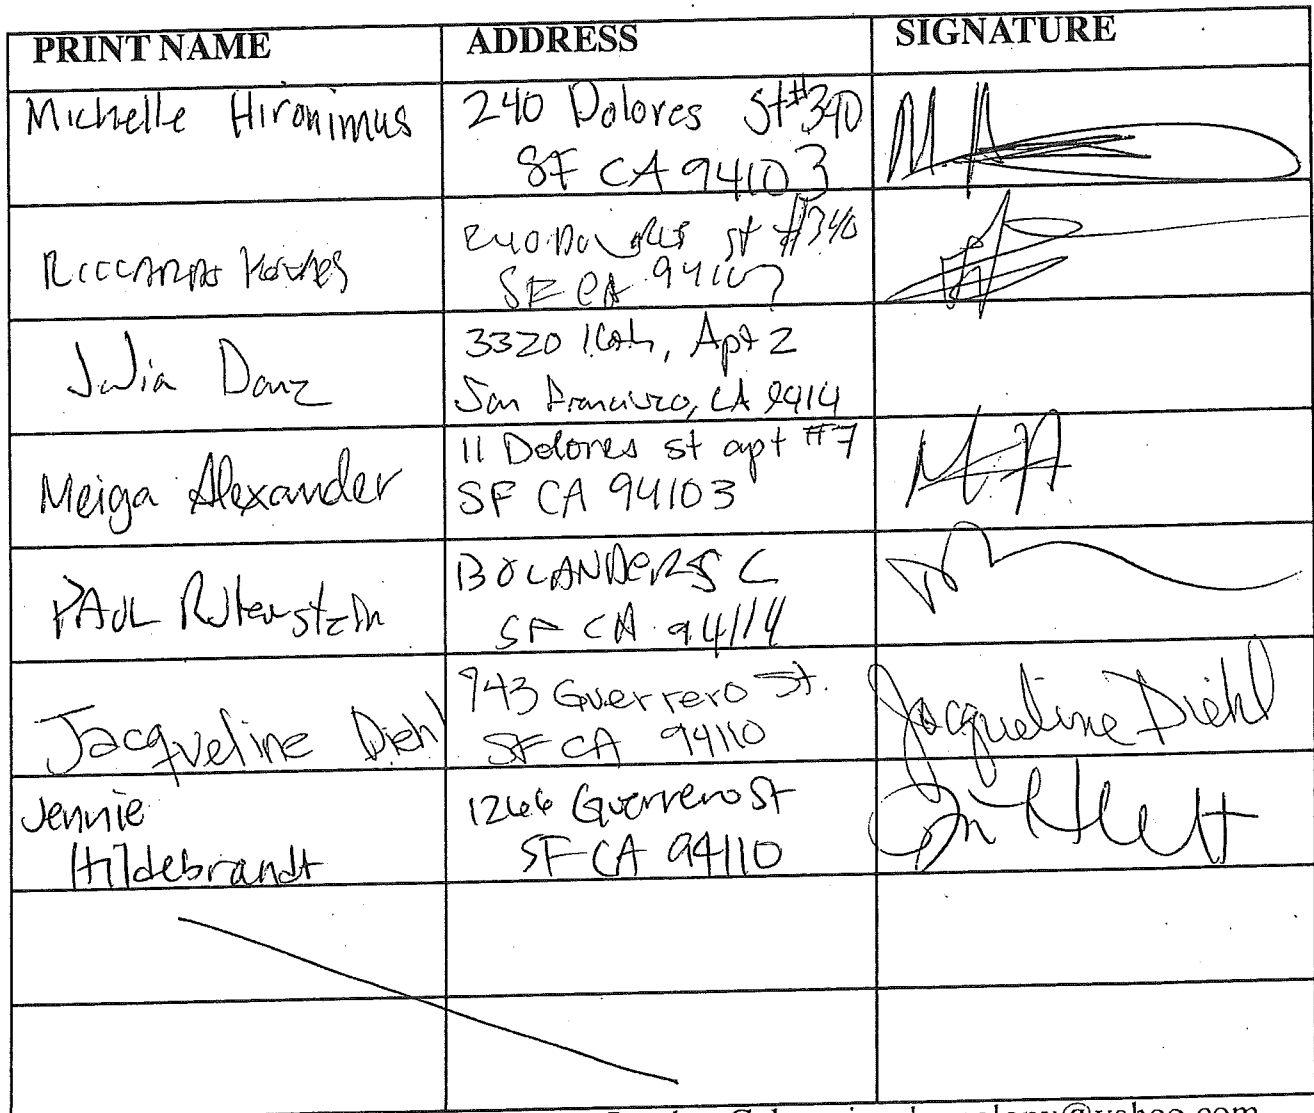 PRINT NAME ADDRESS SIGNATURE
Michelle Hironimus 240 Dolores St #340
SF CA 94103
240 Dolores st #340
SF CA 94103
Julia Danz 3320 16th, Apt 2
San Francisco, CA 9414
Meiga Alexander 11 Dolores st apt #7
SF CA 94103 M.A.
PAUL
SF CA 94114
Jacqueline Diehl 943 Guerrero St.
SF CA 94110 Jacqueline Diehl
Jennie 1266 Guerrero St
Hildebrandt SF CA 94110
@yahoo.com